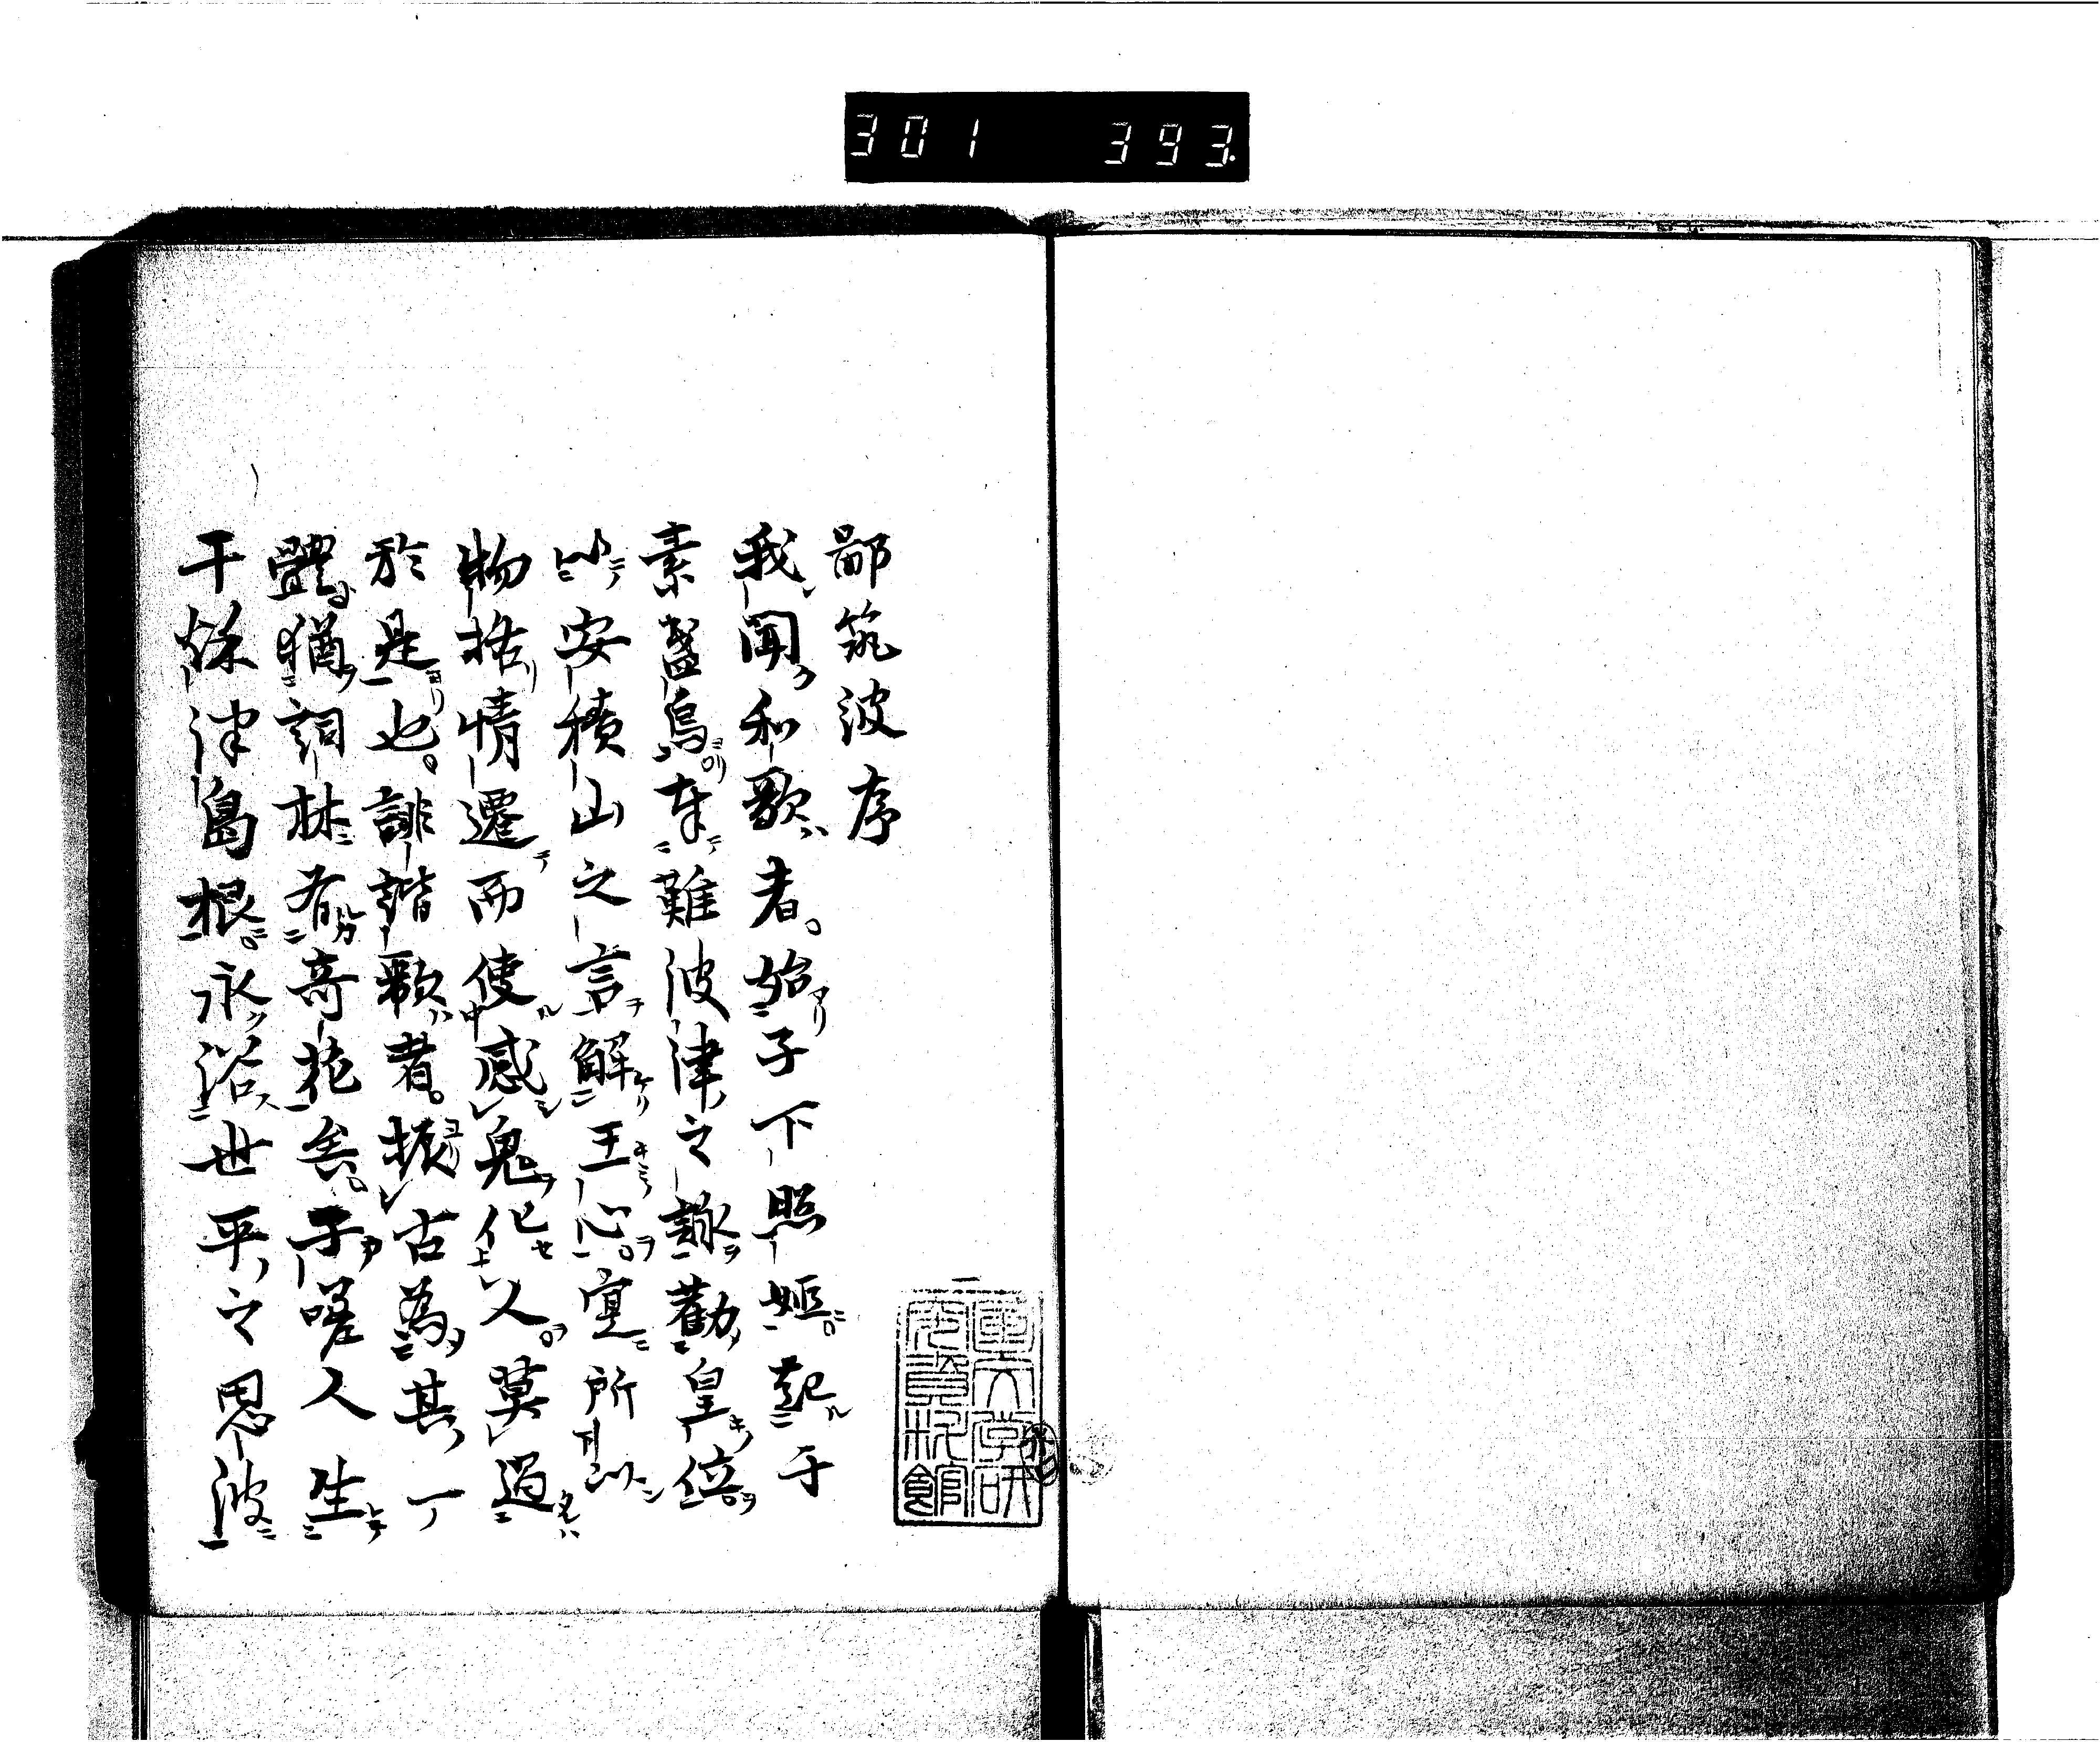 301 393
鄙筑波序
我聞和歌者始于下照姫起于
素盞烏尊難波津之詠勸皇徳
以安積山之言解王心寔所以
物括情遷而使感鬼化人莫過
於是也誹諧歌者振古為其一
體猶詞林有奇花矣于嗟人生
于餘津島根永浴世平之恩波